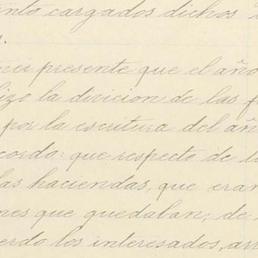 cargados dichos
presente que el año
izo la divicion de las
por la escritura del añ
cordo: que respecto de l
las haciendas, que eran
nes que quedaban, de
erdo los interesados,